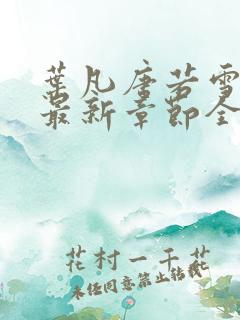 葉凡唐若雪
最新章節全
花村一千花
未经同意禁止转载